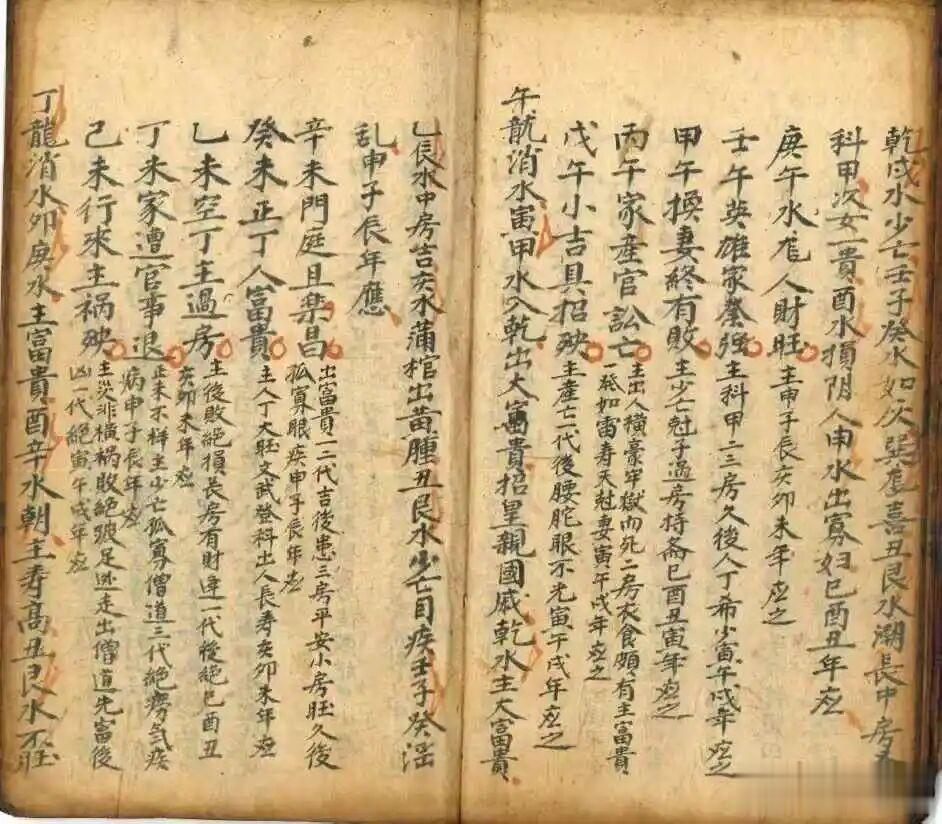 乾戌水少亡壬子癸水如次巽危喜丑艮水潮長中房
科甲次女貴酉水損阴人申水出寡妇巳酉丑年应
庚午水危人財旺主申子辰亥卯未年应之
壬午英雄家發強主科甲二三房久後人丁希少寅午戌年应之
甲午換妻終有敗主少亡尅子過房持斋巳酉丑寅年应之
丙午家産官訟亡主出人橫豪牢獄而死二房衣食頗有主富貴
一発如雷寿夭尅妻寅午戌年应之
戊午小吉具招殃主產亡一代後腰駝眼不光寅午戌年应之
午龍消水寅甲水入乾出大富貴招皇親國戚乾水主大富貴
乙辰水中房吉亥水蒲棺出黄腫丑艮水少亡目疾壬子癸淫
乱申子辰年應
辛未門庭且樂昌出富貴一二代吉後患三房平安小房旺久後
孤寡眼疾申子辰年应
癸未正丁人富貴主人丁大旺文武登科出人長寿亥卯未年应
乙未空丁主過房主後敗絕損長房有財速一代後絕巳酉丑
亥卯未年应
丁未家遭官事退正未不祥主少亡孤寡僧道三代絕癆氣疾
病申子辰年应
己未行來主禍殃主災非橫禍敗絕跛足逃走出僧道先富後
凶一代絕寅午戌年应
丁龍消水卯庚水主富貴酉辛水朝主寿高丑艮水不旺